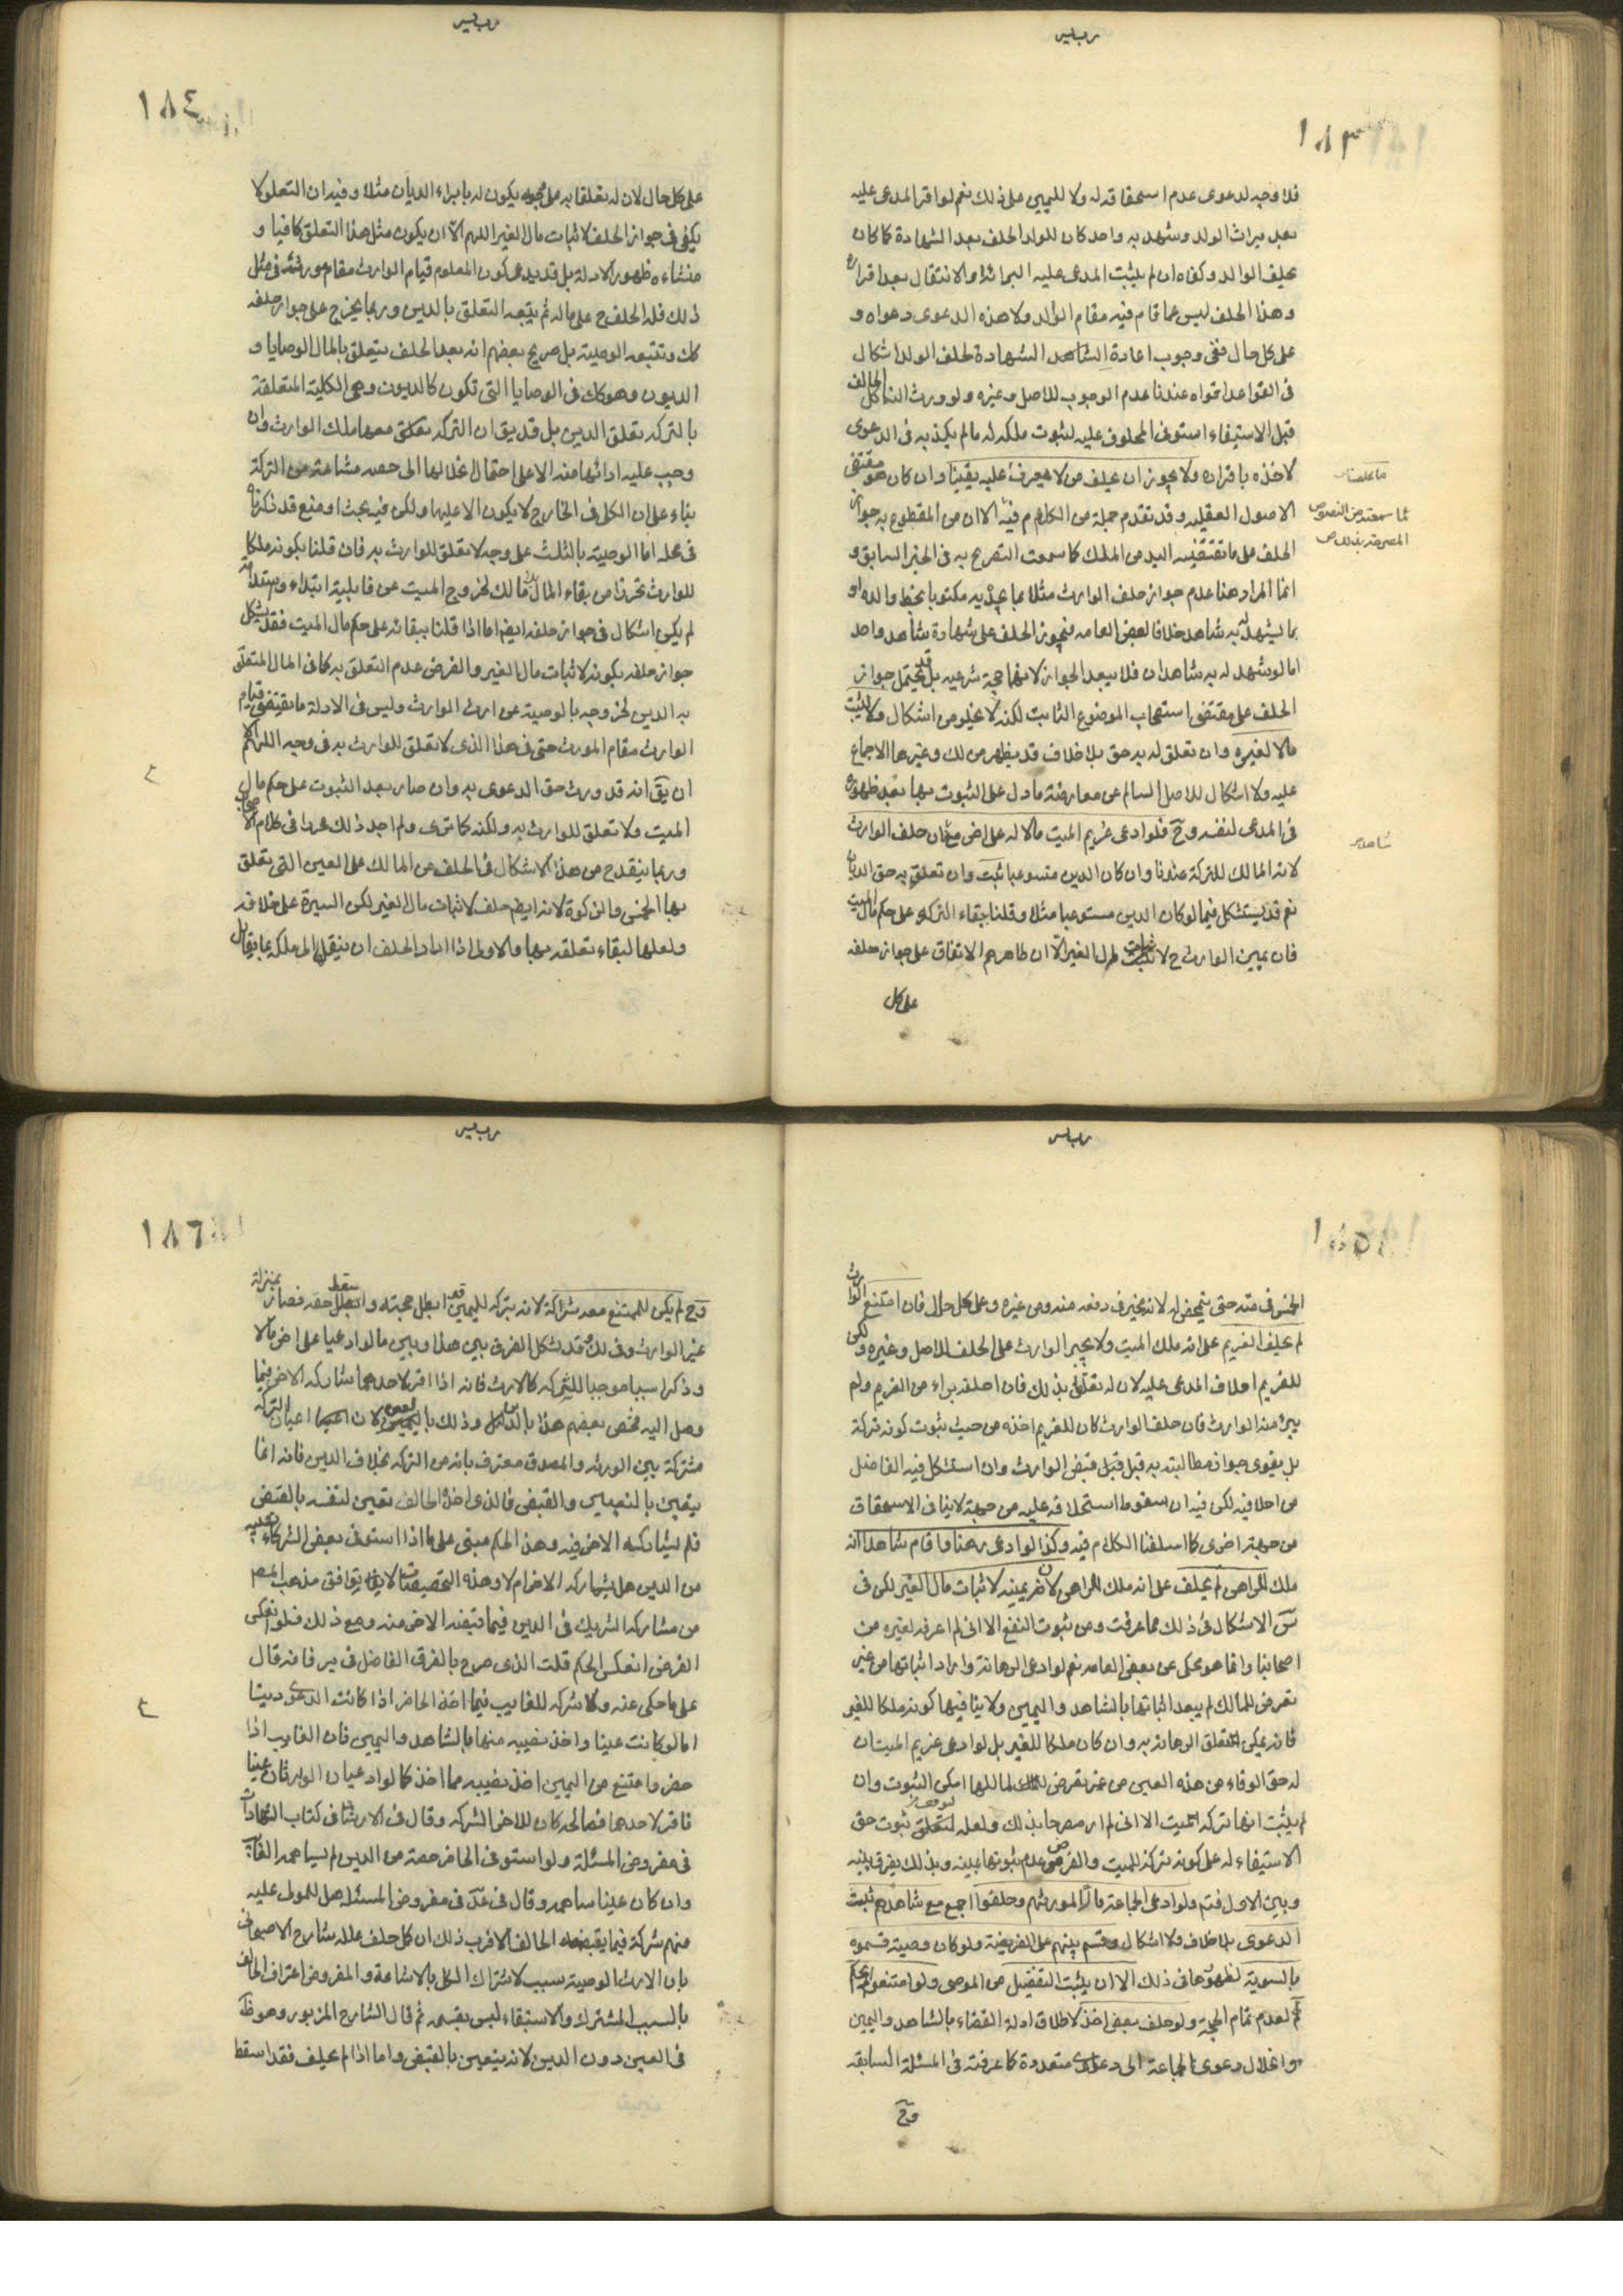 ١٨٣
فلا وجه لدعوى عدم استحقاقه له ولا لليمين على ذلك نعم لو اقر المدعى عليه
بعد ميراث الولد وشهد به واحد كان للولد الحلف بعد الشهادة كما كان
يحلف الوالد وكفاه ان لم يثبت المدعى عليه البرائة او الانتقال بعد اقراره
وهذا الحلف ليس مما قام فيه مقام الوالد ولا هذه الدعوى دعواه و
على كل حال ففي وجوب اعادة الشاهد الشهادة لحلف الولد اشكال
في القواعد اقواه عندنا عدم الوجوب للاصل وغيره ولو ورث الناكل الحالف
قبل الاستيفاء استوفى المحلوف عليه لثبوت ملكه له ما لم يكذبه في الدعوى
لاخذه باقراره ولا يجوز ان يحلف من لا يعرف عليه يقينا وان كان هو مقتضى
الاصول العقلية وقد تقدم جملة من الكلام فيه الا ان من المقطوع به جواز
الحلف على ما تقتضيه اليد من الملك كما سمعت التصريح به في الخبر السابق و
انما المراد هنا عدم جواز حلف الوارث مثلا بما يجد به مكتوبا بخط والده او
بما يشهد له به شاهد خلافا لبعض العامه فيجوز الحلف على شهادة شاهد واحد
اما لو شهد له به شاهدان فلا يبعد الجواز لانهما حجة شرعيه بل قد يحتمل جواز
الحلف على مقتضى استصحاب الموضوع الثابت لكنه لا يخلو من اشكال ولا يثبت
مالا لغيره وان تعلق له به حق بلا خلاف قد يظهر من لك وغيرها الاجماع
عليه ولا اشكال للاصل السالم عن معارضة ما دل على الثبوت بها بعد ظهوره
في المدعى لنفسه وح فلو ادعى غريم الميت مالا له على اخر مع شاهد فان حلف الوارث
لانه المالك للتركة عندنا وان كان الدين مستوعبا ثبت وان تعلق به حق الديان
نعم قد يستشكل فيما لو كان الدين مستوعبا مثلا وقلنا ببقاء التركه على حكم مال الميت
فان يمين الوارث ح لاثبات مال الغير الا ان ظاهرهم الاتفاق على جواز حلفه
على كل
١٨٤
على كل حال لان له تعلقا به على وجه يكون له بابراء الديان مثلا وفيه ان التعلق لا
يكفى في جواز الحلف لاثبات مال الغير اللهم الا ان يكون مثل هذا التعلق كافيا و
منشاءه ظهور الادلة بل قد يدعى كون المعلوم قيام الوارث مقام مورثه في مثل
ذلك فله الحلف ح على ماله ثم يتبعه التعلق بالدين وربما يخرج على جواز حلفه
كك وتتبعه الوصية بل صريح بعضهم انه بعد الحلف يتعلق بالمال الوصايا و
الديون وهو كك في الوصايا التي تكون كالديون وهي الكلية المتعلقة
بالتركه تعلق الدين بل قد يق ان التركه تعلق معها ملك الوارث وان
وجب عليه ادائها منه الا على احتمال انحلالها الى حصه مشاعة من التركة
بناء على ان الكل في الخارج لا يكون الا عليها ولكن فيه بحث او منع قد ذكرناه
في محله اما الوصية بالثلث على وجه لا تعلق للوارث به فان قلنا بكونه ملكا
للوارث تحرزا من بقاء المال بلا مالك لخروج الميت عن قابلية ابتداء واستدامة
لم يكن اشكال في جواز حلفه ايضا اما اذا قلنا ببقائه على حكم مال الميت فقد يشكل
جواز حلفه بكونه لاثبات مال الغير والفرض عدم التعلق به كما في المال المتعلق
به الدين لخروجه بالوصية عن ارث الوارث وليس في الادلة ما يقتضى قيام
الوارث مقام المورث حتى في هذا الذى لا تعلق للوارث به في وجه اللهم الا
ان يق انه قد ورث حق الدعوى به وان صار بعد الثبوت على حكم مال
الميت ولا تعلق للوارث به ولكنه كما ترى ولم اجد ذلك محررا في كلام الاصحاب
وربما ينقدح من هذا الاشكال في الحلف من المالك على العين التي تعلق
بها الخمس والزكوة لانه ايضا حلف لاثبات مال الغير لكن السيرة على خلافه
ولعلها لبقاء تعلقه بها والاولى اذا اراد الحلف ان ينقل الى ملكه بما يقابل
١٨٥
الخمس في ذمته حتى يتمحض له لانه مخير في دفعه منه ومن غيره وعلى كل حال فان امتنع الوارث
لم يحلف الغريم على انه ملك الميت ولا يجبر الوارث على الحلف للاصل وغيره ولكن
للغريم احلاف المدعى عليه لان له تعلقا بذلك فان احلفه براء من الغريم ولم
يبرء منه الوارث فان حلف الوارث كان للغريم اخذه من حيث ثبوت كونه تركة
بل يقوى جواز مطالبته به قبل قبض الوارث وان استشكل فيه الفاضل
من احلافه لكن فيه ان سقوط استحلافه عليه من جهة لا ينافى الاستحقاق
من جهة اخرى كما اسلفنا الكلام فيه وكذا لو ادعى رهنا واقام شاهدا انه
ملك للراهن لم يحلف على انه ملك الراهن لان يمينه لاثبات مال الغير لكن في
س الاشكال في ذلك مما عرفت ومن ثبوت النفع الا انى لم اعرفه لغيره من
اصحابنا وانما هو محكى عن بعض العامه نعم لو ادعى الرهانة واراد اثباتها من غير
تعرض للمالك لم يبعد اثباتها بالشاهد واليمين ولا ينافيها كونه ملكا للغير
فانه يمكن تعلق الرهانه به وان كان ملكا للغير بل لو ادعى غريم الميت ان
له حق الوفاء من هذه العين من غير تعرض لمالكها امكن الثبوت وان
لم يثبت انها تركه الميت الا انى لم ار مصرحا بذلك ولعله لتوقف ثبوت حق
الاستيفاء له على كونه تركة للميت والفرض عدم ثبوتها بيمينه وبذلك يفرق بينه
وبين الاول فتم ولو ادعى الجماعة مالا لمورثهم وحلفوا اجمع مع شاهدهم ثبت
الدعوى بلا خلاف ولا اشكال وقسم بينهم على الفريضة ولو كان وصية قسموه
بالسوية لظهورها في ذلك الا ان يثبت التفضيل من الموصى ولو امتنعوا لم يحكم
لهم لعدم تمام الحجة ولو حلف بعض اخذ لاطلاق ادلة القضاء بالشاهد واليمين
وانحلال دعوى الجماعة الى دعاوى متعددة كما عرفته في المسئلة السابقه
وح
١٨٦
وح لم يكن للممتنع معه شراكة لانه بتركه لليمين قد ابطل حجته واسقط حقه فصار بمنزلة
غير الوارث وفي لك قد يشكل الفرق بين هذا وبين ما لو ادعيا على اخر مالا
وذكرا سببا موجبا للشركه كالارث فانه اذا اقر لاحدهما شاركه الاخر فيما
وصل اليه فخص بعضهم هذا بالدين وذلك بالعين لان اعيان التركه
مشتركة بين الورثه والمصدق معترف بانه من التركه بخلاف الدين فانه انما
يتعين بالتعيين والقبض فالذى اخذه الحالف تعين لنفسه بالقبض
فلم يشاركه الاخر فيه وهذا الحكم مبنى على ما اذا استوفى بعض الشركاء نصيبه
من الدين هل يشاركه الاخر ام لا وهذه التخصيصات لا توافق مذهب المصنف
من مشاركه الشريك في الدين فيما قبضه الاخر منه ومع ذلك فلو انعكس
الفرض انعكس الحكم قلت الذى صرح بالفرق الفاضل في ير فانه قال
على ما حكى عنه ولا شركه للغايب فيما اخذه الحاضر اذا كانت الدعوى دينا
اما لو كانت عينا واخذ نصيبه منها بالشاهد واليمين فان الغايب اذا
حضر وامتنع من اليمين اخذ نصيبه مما اخذ كما لو ادعيا الورثان عينا
فاقر لاحدهما فصالحه كان للاخر الشركه وقال في الارشاد في كتاب الشهادات
في مفروض المسئلة ولو استوفى الحاضر حصة من الدين لم يساهمه الغايب
وان كان عينا ساهمه وقال في عد في مفروض المسئله هل للمولى عليه
منهم شركة فيما يقبضه الحالف الاقرب ذلك ان كل حلف علله شارح الاصبهانى
بان الارث الوصية سبب لاشتراك الكل بالاشاعة والمفروض اعتراف الحالف
بالسبب المشترك والاستيفاء ليس بقسمه ثم قال الشارح المزبور وهو ظ
في العين دون الدين لانه يتعين بالقبض واما اذا لم يحلف فقد اسقط